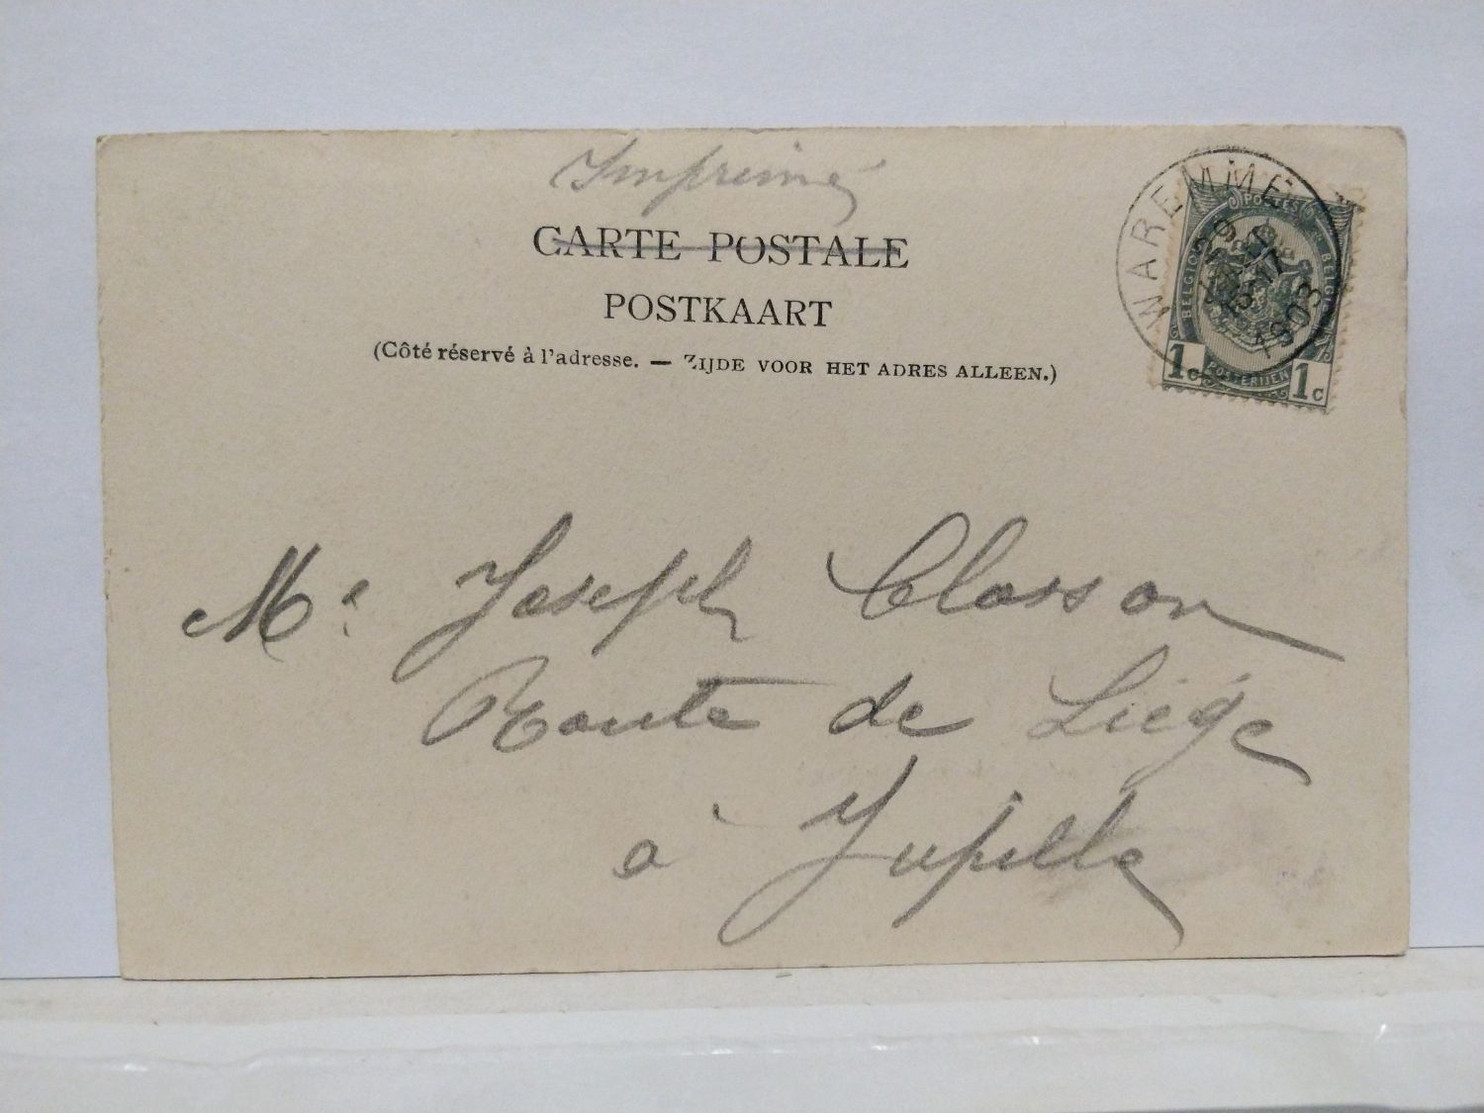 Imprimé
CARTE POSTALE
POSTKAART
(Côté réservé à l'adresse. — ZIJDE VOOR HET ADRES ALLEEN.)
WAREMME
1903
POSTES
BELGIQUE
BELGIË
1c POSTERIJEN 1c
Mr Joseph Closson
Route de Liége
à Jupille